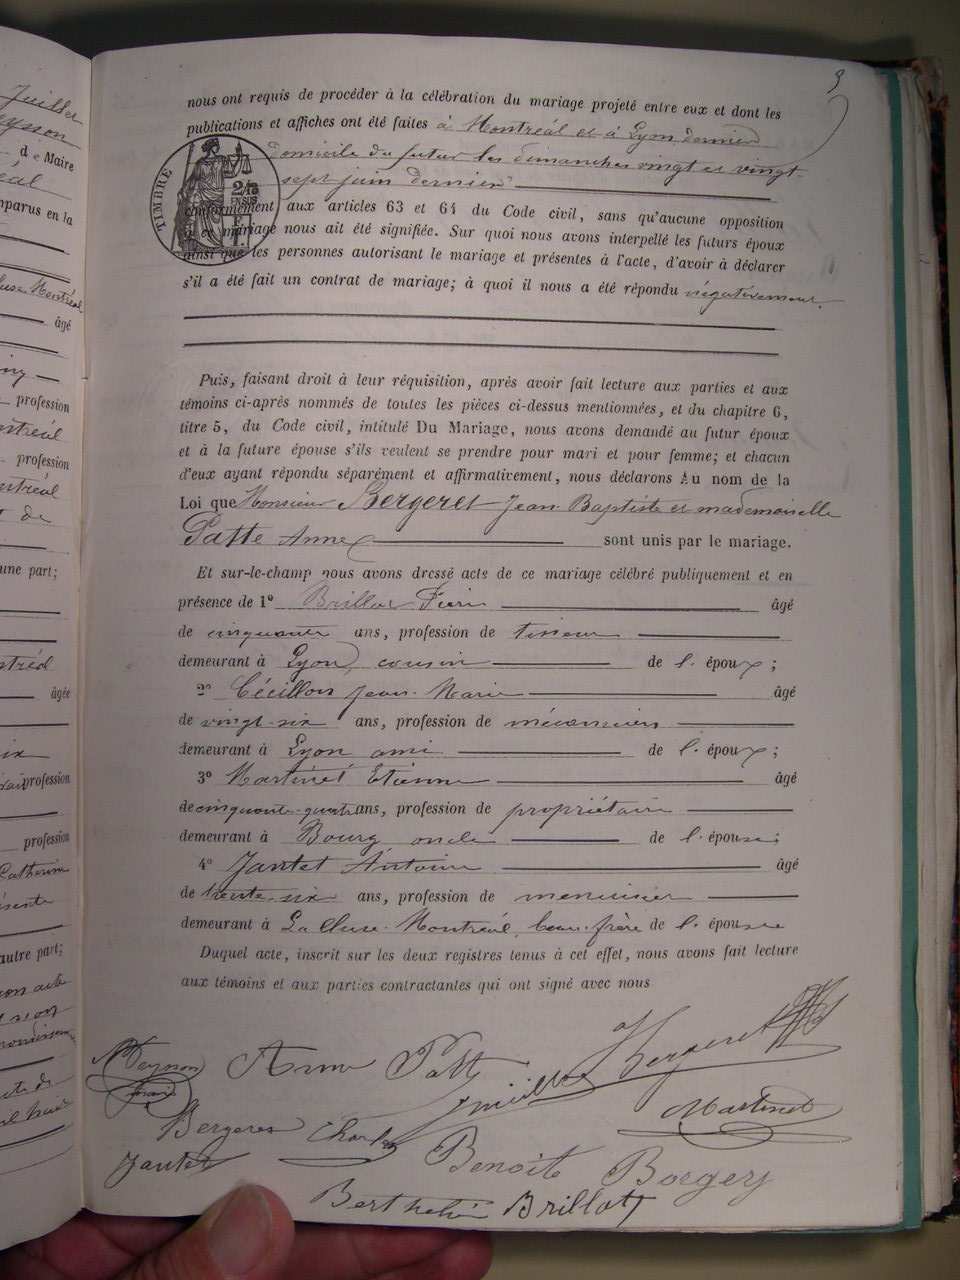 Juillet
d e Maire
comparus en la
Cluse Montréal
âgé
profession
profession
une part;
âgée
profession
profession
Catherine
autre part;
9
nous ont requis de procéder à la célébration du mariage projeté entre eux et dont les
publications et affiches ont été faites à Montréal et à Lyon dernier
domicile du futur les dimanches vingt et vingt-
sept juin dernier
TIMBRE
2/10
EN SUS
conformément aux articles 63 et 64 du Code civil, sans qu'aucune opposition
à ce mariage nous ait été signifiée. Sur quoi nous avons interpellé les futurs époux
ainsi que les personnes autorisant le mariage et présentes à l'acte, d'avoir à déclarer
s'il a été fait un contrat de mariage; à quoi il nous a été répondu négativement.
Puis, faisant droit à leur réquisition, après avoir fait lecture aux parties et aux
témoins ci-après nommés de toutes les pièces ci-dessus mentionnées, et du chapitre 6,
titre 5, du Code civil, intitulé Du Mariage, nous avons demandé au futur époux
et à la future épouse s'ils veulent se prendre pour mari et pour femme; et chacun
d'eux ayant répondu séparément et affirmativement, nous déclarons Au nom de la
Loi que Monsieur Bergeret Jean Baptiste et mademoiselle
Patte Anne sont unis par le mariage.
Et sur-le-champ nous avons dressé acte de ce mariage célébré publiquement et en
présence de 1° Brillat âgé
de cinquante ans, profession de tisseur
demeurant à Lyon, cousin de l'époux;
2° Cécillon Jean-Marie âgé
de vingt-six ans, profession de mécanicien
demeurant à Lyon ami de l'époux;
3° Martinet Etienne âgé
de cinquante-quatre ans, profession de propriétaire
demeurant à Bourg oncle de l'épouse;
4° Jantet Antoine âgé
de trente-six ans, profession de menuisier
demeurant à La Cluse-Montréal, beau-frère de l'épouse
Duquel acte, inscrit sur les deux registres tenus à cet effet, nous avons fait lecture
aux témoins et aux parties contractantes qui ont signé avec nous
Anne Patte Bergeret
Martinet
Bergeret Charles
Jantet Benoite Borgery
Brillat